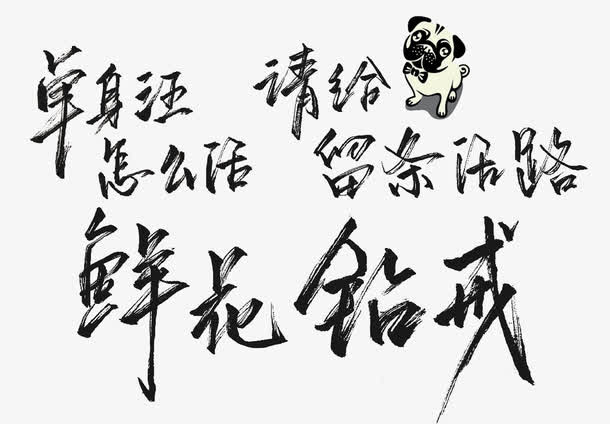 单身汪
怎么活
请给
留条活路
鲜花
钻戒